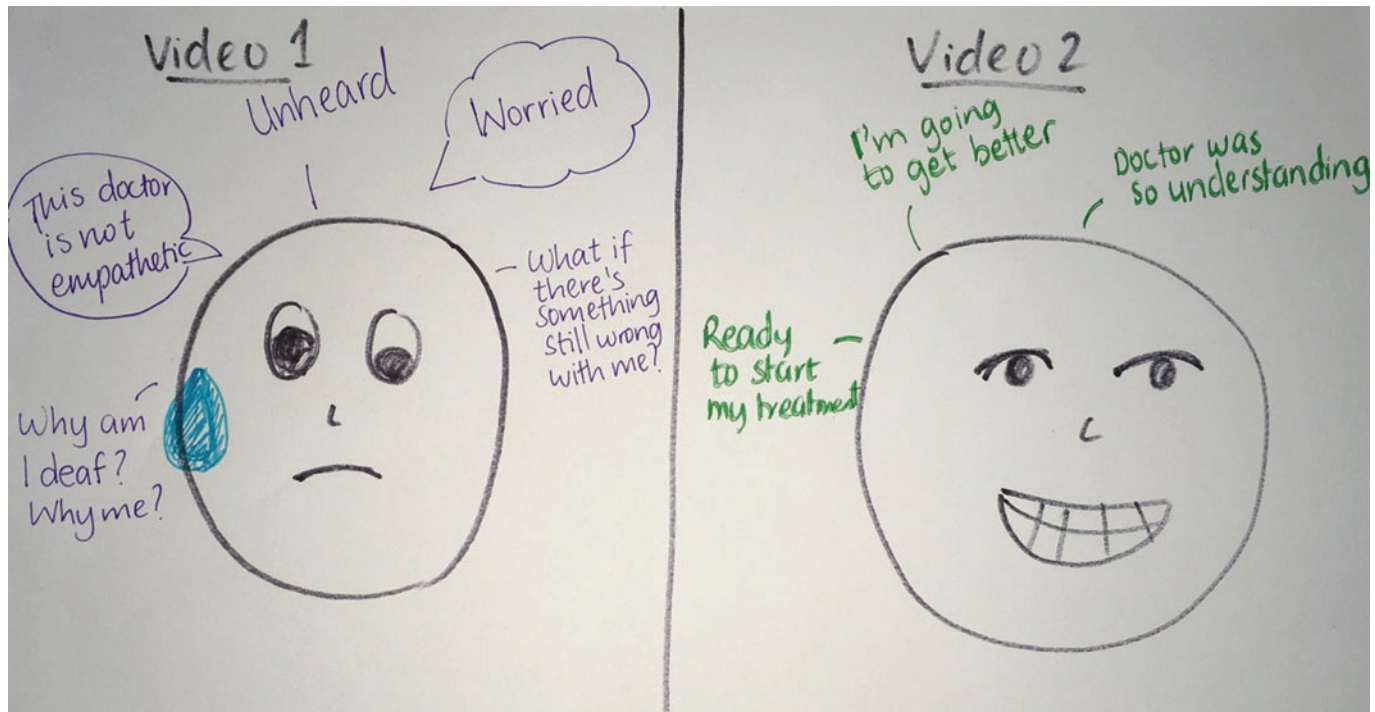 Video 1
Unheard
Worried
This doctor
is not
empathetic
What if
there's
something
still wrong
with me?
Why am
I deaf?
Why me?
Video 2
I'm going
to get better
Doctor was
so understanding
Ready
to start
my treatment